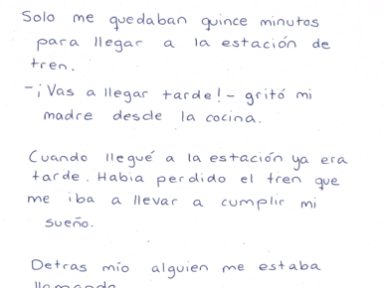 Solo me quedaban quince minutos
para llegar a la estación de
tren.
-¡Vas a llegar tarde!- gritó mi
madre desde la cocina.
Cuando llegué a la estación ya era
tarde. Habia perdido el tren que
me iba a llevar a cumplir mi
sueño.
Detras mío alguien me estaba
llamando